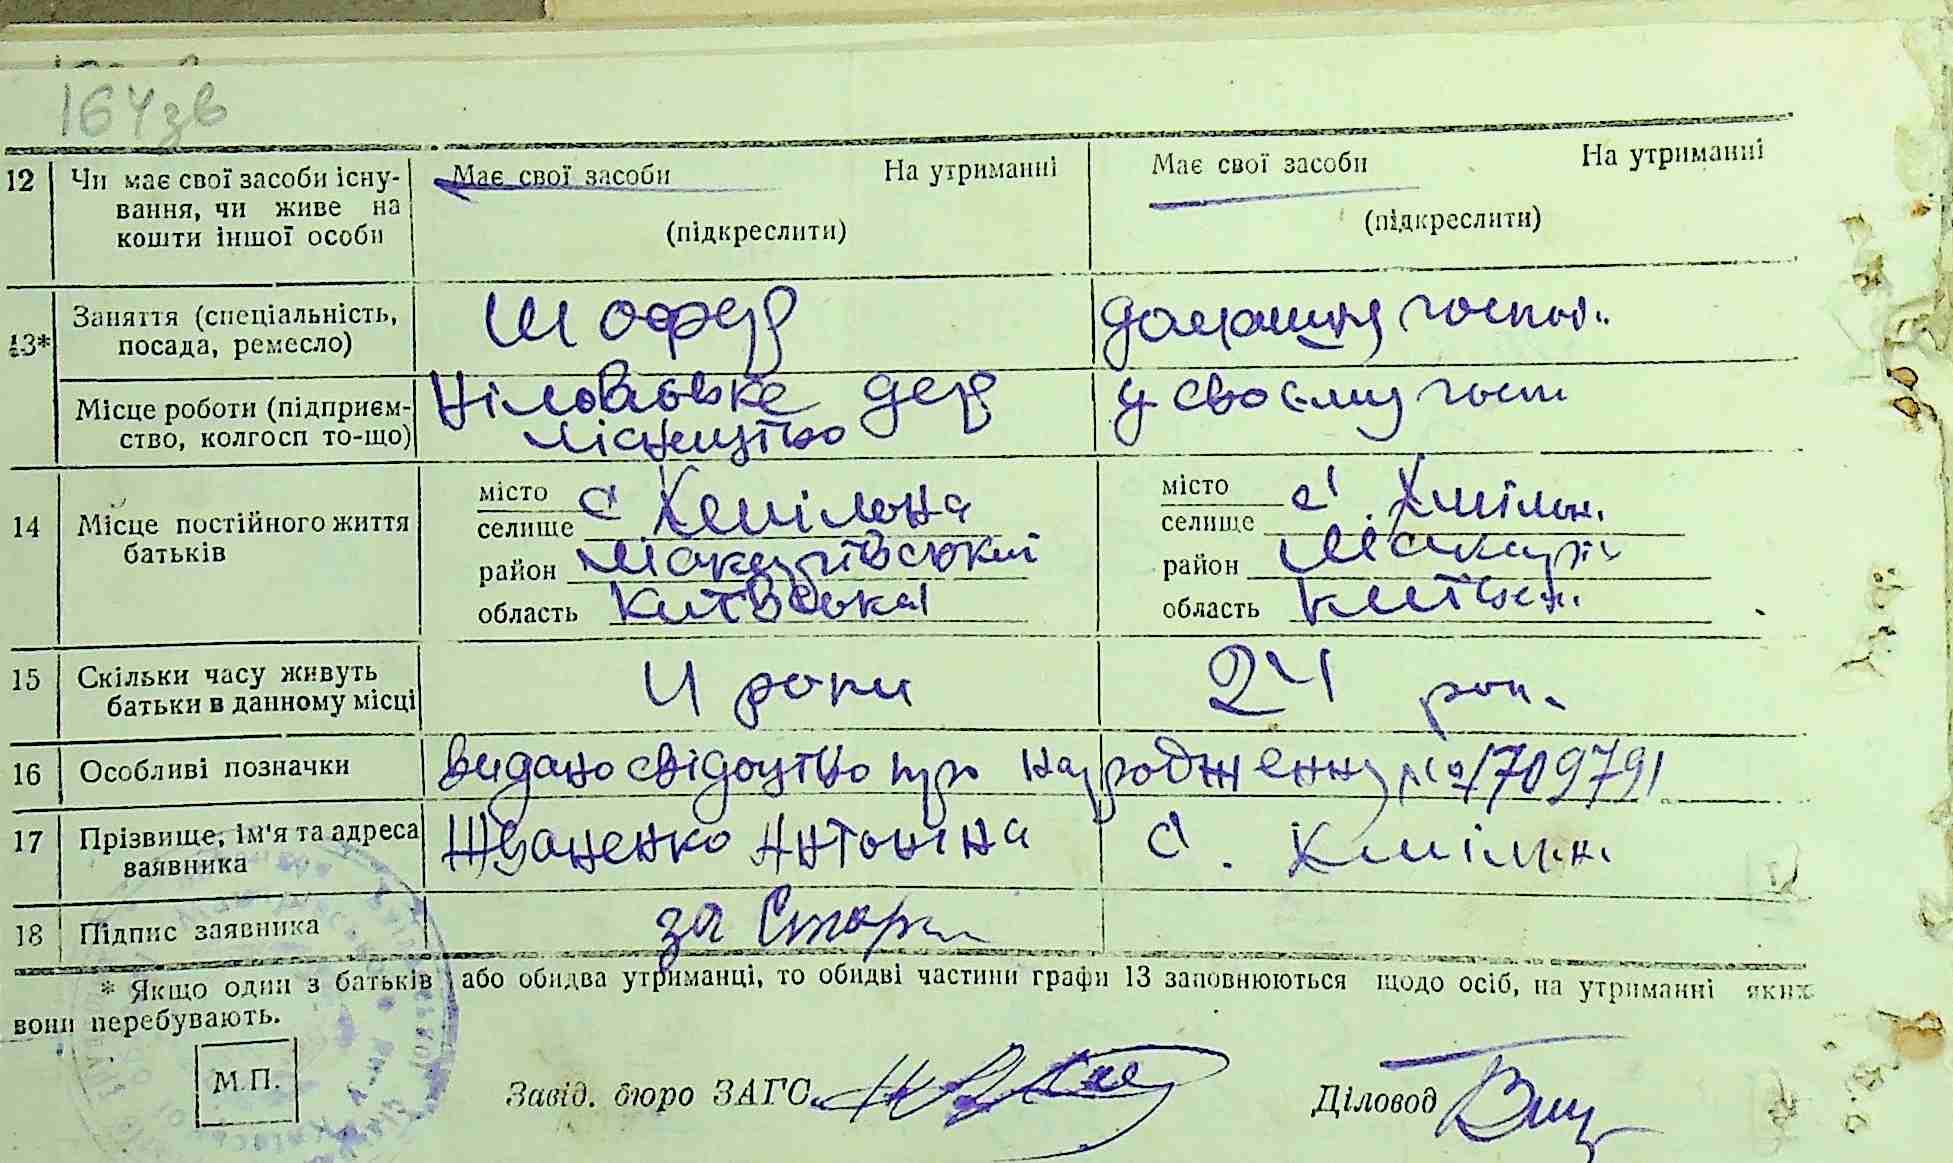 164зв
12 Чи має свої засоби існу- Має свої засоби На утриманні Має свої засоби На утриманні
вання, чи живе на (підкреслити) (підкреслити)
кошти іншої особи
13* Заняття (спеціальність, Шофер домашня господ.
посада, ремесло)
Місце роботи (підприєм- дер у своєму госп
ство, колгосп то-що) лісництво
14 Місце постійного життя місто с. Хмільна місто с. Хмільн.
батьків селище селище
район Макарівський район Макарів
область Київська область Київськ.
15 Скільки часу живуть 4 роки 24 рок.
батьки в данному місці
16 Особливі позначки видано свідоцтво про народження № 1709791
17 Прізвище, ім'я та адреса Антоніна с. Хмільн.
заявника
18 Підпис заявника за
* Якщо один з батьків або обидва утриманці, то обидві частини графи 13 заповнюються щодо осіб, на утриманні яких
вони перебувають.
М.П. Завід. бюро ЗАГС Діловод